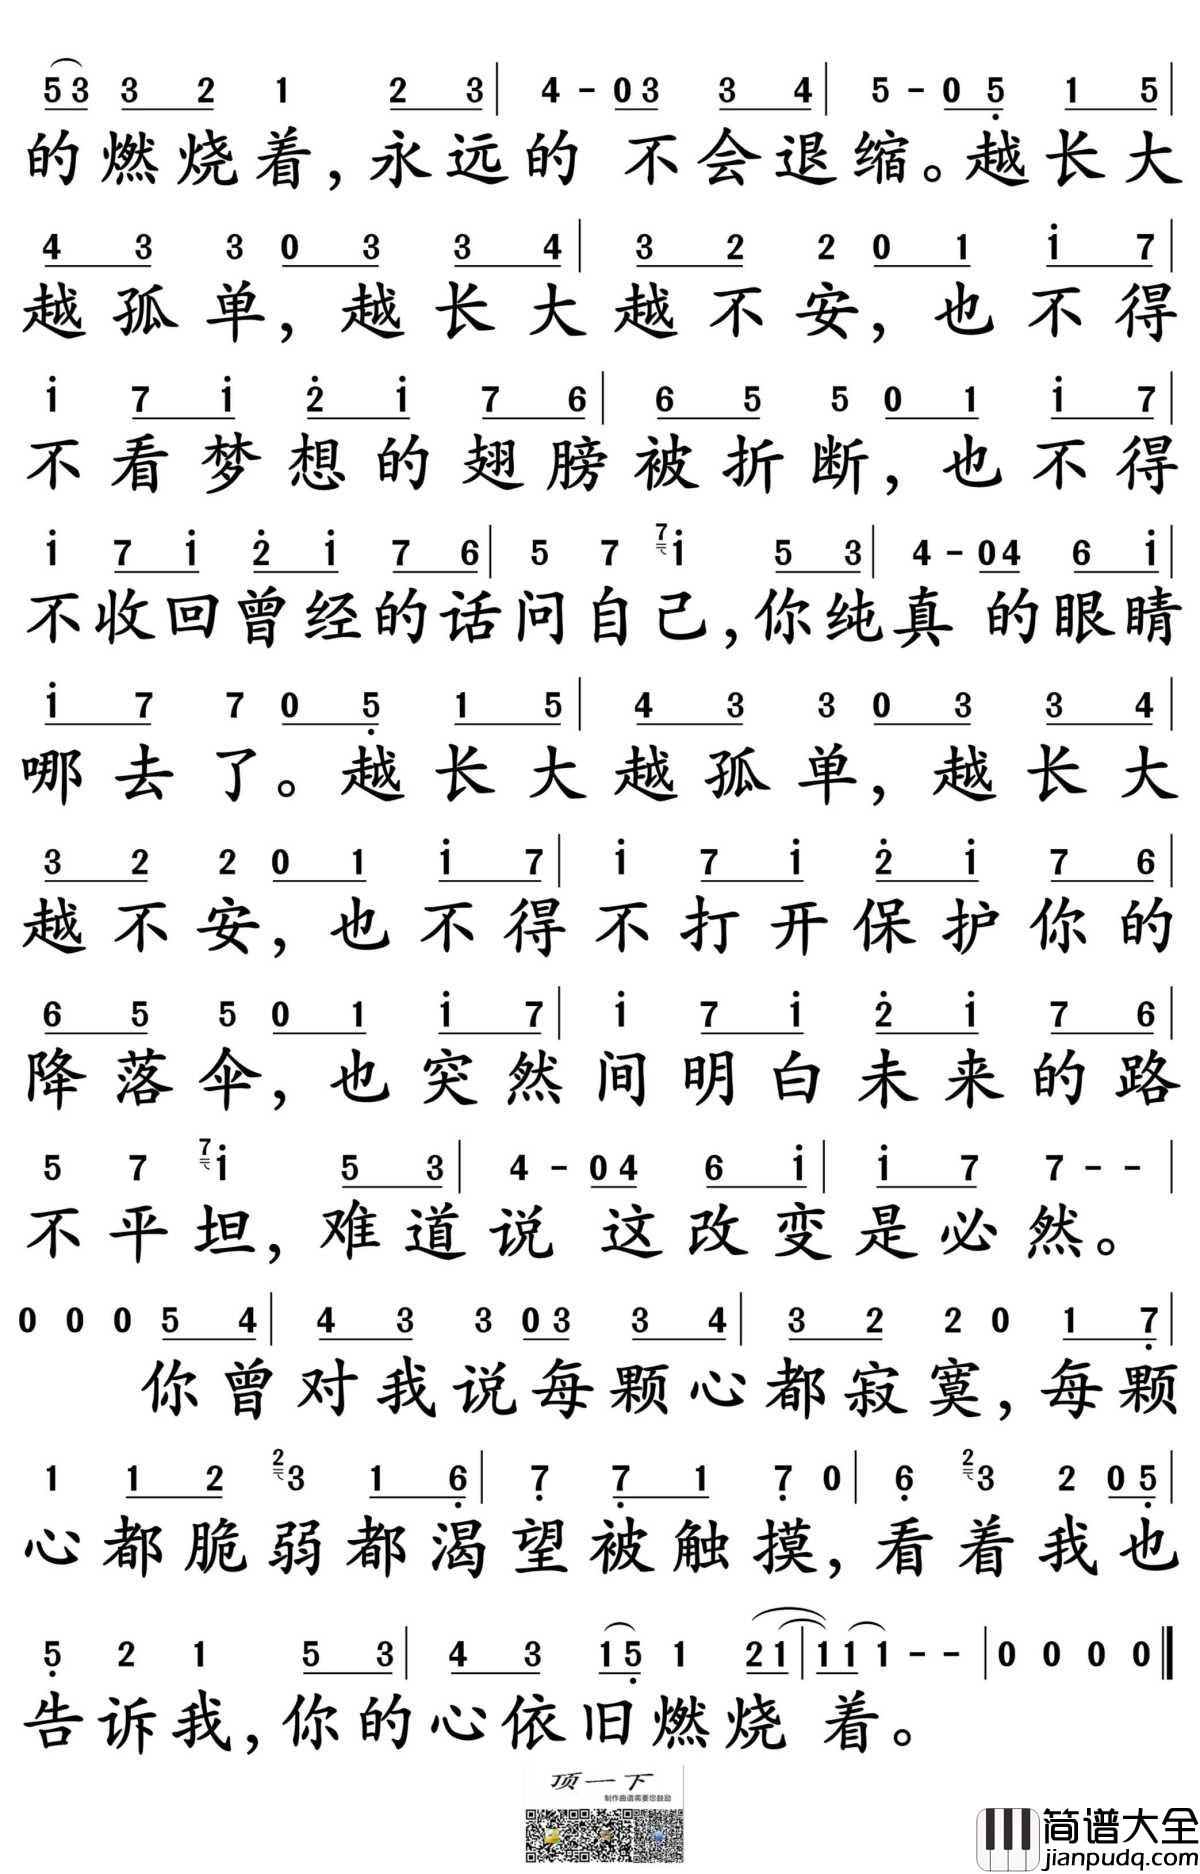 53 3 2 1 2 3 | 4 - 03 3 4 | 5 - 0 5̣ 1 5 |
的燃烧着,永远的 不会退缩。越长大
4 3 3 0 3 3 4 | 3 2 2 0 1 1̇ 7 |
越孤单,越长大越不安,也不得
1̇ 7 1̇ 2̇ 1̇ 7 6 | 6 5 5 0 1 1̇ 7 |
不看梦想的翅膀被折断,也不得
1̇ 7 1̇ 2̇ 1̇ 7 6 | 5 7 71̇ 5 3 | 4 - 04 6 1̇
不收回曾经的话问自己,你纯真 的眼睛
1̇ 7 7 0 5̣ 1 5 | 4 3 3 0 3 3 4 |
哪去了。越长大越孤单,越长大
3 2 2 0 1 1̇ 7 | 1̇ 7 1̇ 2̇ 1̇ 7 6 |
越不安,也不得不打开保护你的
6 5 5 0 1 1̇ 7 | 1̇ 7 1̇ 2̇ 1̇ 7 6 |
降落伞,也突然间明白未来的路
5 7 71̇ 5 3 | 4 - 04 6 1̇ | 1̇ 7 7 - - |
不平坦,难道说 这改变是必然。
0 0 0 5 4 | 4 3 3 03 3 4 | 3 2 2 0 1 7̣ |
你曾对我说每颗心都寂寞,每颗
1 1 2 23 1 6̣ | 7̣ 7̣ 1 7̣ 0 | 6̣ 23 2 05̣ |
心都脆弱都渴望被触摸,看着我也
5̣ 2 1 5 3 | 4 3 15̣ 1 21 | 11 1 - - | 0 0 0 0 ‖
告诉我,你的心依旧燃烧 着。
顶一下
制作曲谱需要您鼓励
简谱大全
jianpudq.com